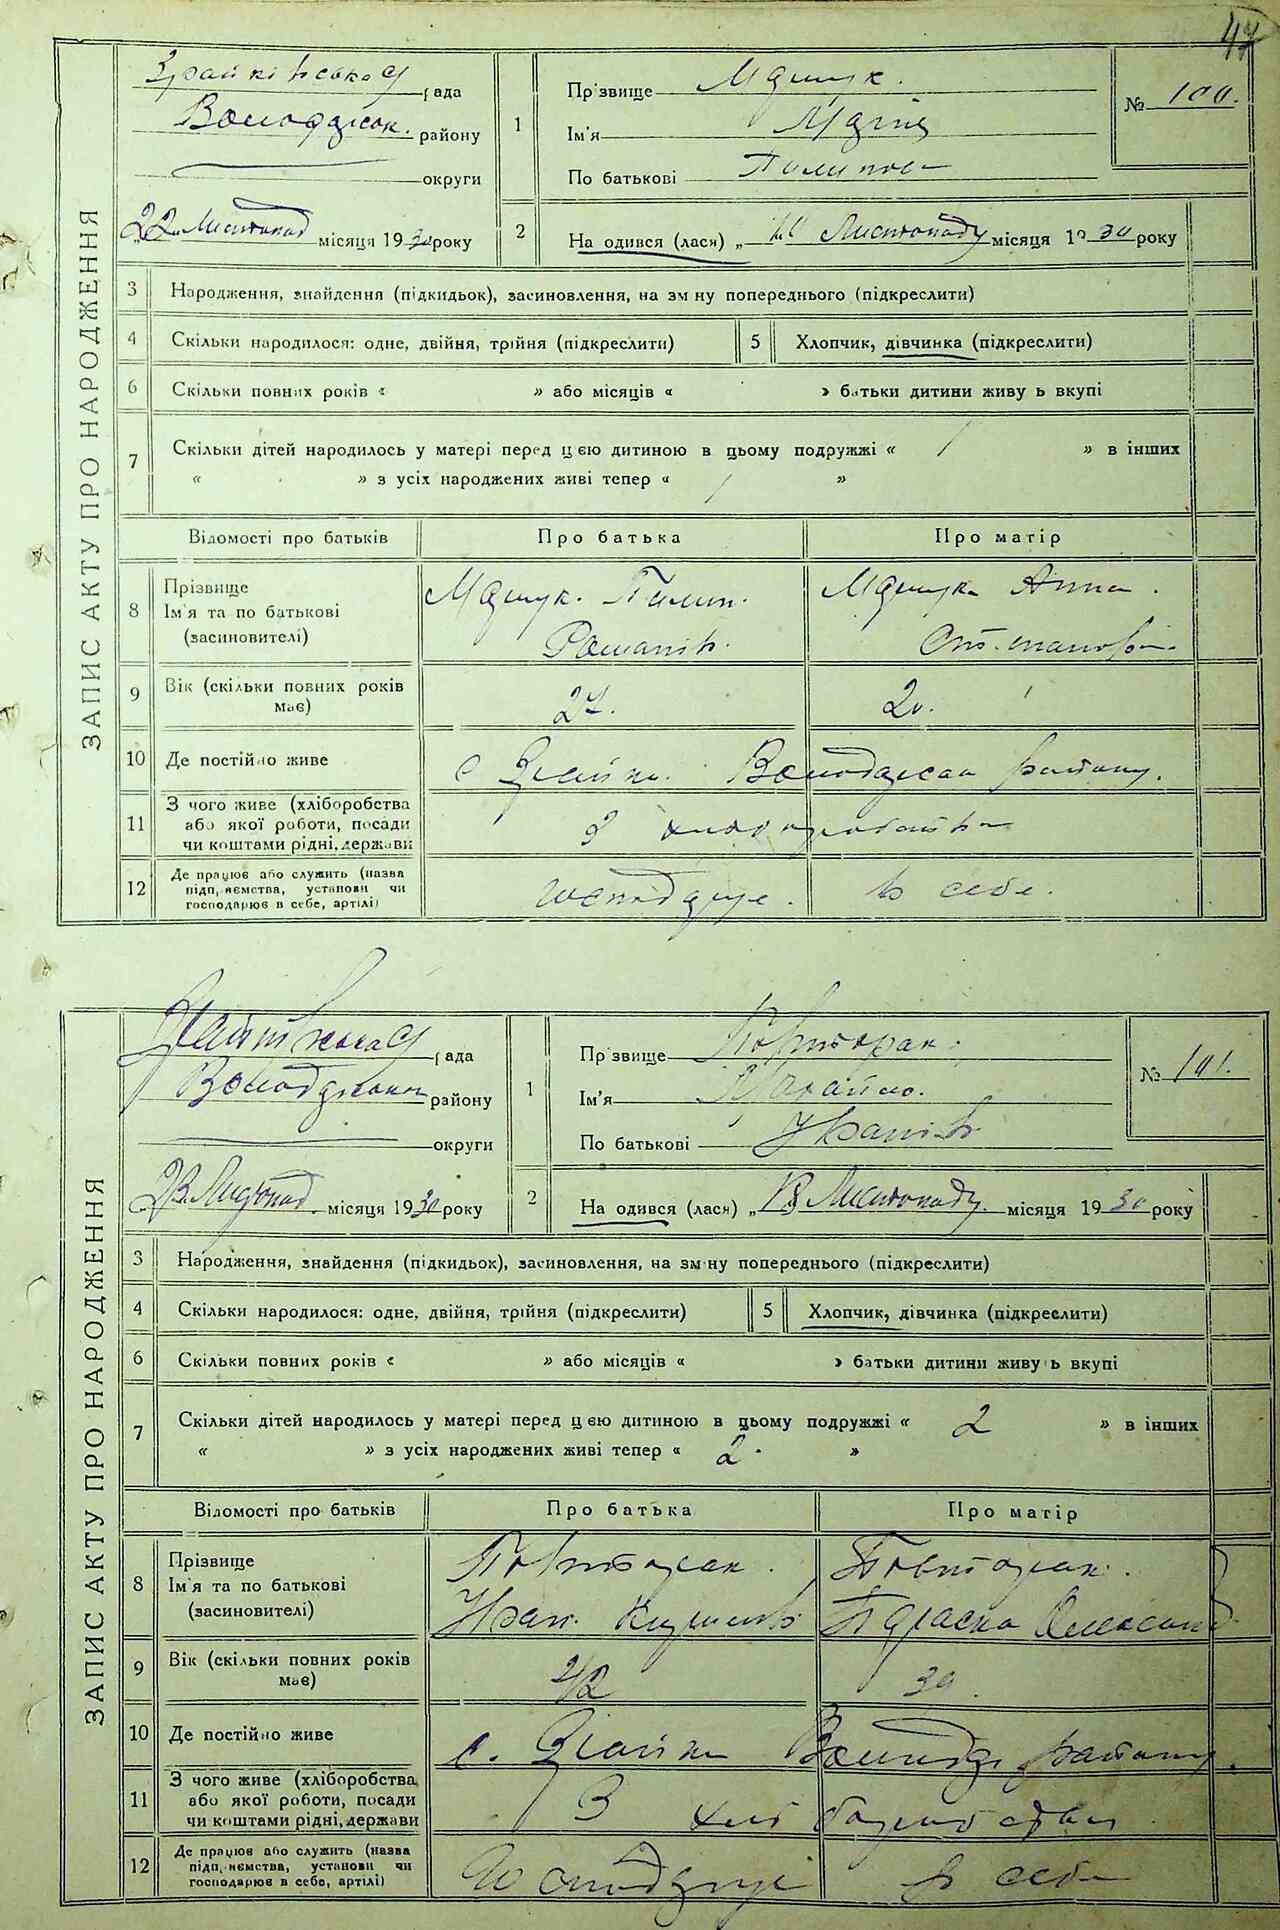 47
ЗАПИС АКТУ ПРО НАРОДЖЕННЯ
рада
Володарськ. району
округи
22 Листопад місяця 1930 року
1
Прізвище Мащук.
Ім'я Марія
По батькові Пилипова
№ 100.
2
Народився (лася) „ Листопаду місяця 1930 року
3 Народження, знайдення (підкидьок), засиновлення, на зміну попереднього (підкреслити)
4 Скільки народилося: одне, двійня, трійня (підкреслити)
5 Хлопчик, дівчинка (підкреслити)
6 Скільки повних років « » або місяців « » батьки дитини живуть вкупі
7 Скільки дітей народилось у матері перед цією дитиною в цьому подружжі « 1 » в інших
« » з усіх народжених живі тепер « 1 »
Відомості про батьків Про батька Про матір
8 Прізвище
Ім'я та по батькові
(засиновителі)
Мащук. Пилип.
Романів.
Мащук Анна.
9 Вік (скільки повних років
має)
27. 20.
10 Де постійно живе
с Володарськ району.
11 З чого живе (хліборобства
або якої роботи, посади
чи коштами рідні, держави
З хліборобства
12 Де працює або служить (назва
підприємства, установи чи
господарює в себе, артілі)
Господарює. в себе.
ЗАПИС АКТУ ПРО НАРОДЖЕННЯ
рада
Володарськ району
округи
23. Листопад місяця 1930 року
1
Прізвище Повторак.
Ім'я Михайло.
По батькові Іванів
№ 101.
2
Народився (лася) „ 18 Листопаду місяця 1930 року
3 Народження, знайдення (підкидьок), засиновлення, на зміну попереднього (підкреслити)
4 Скільки народилося: одне, двійня, трійня (підкреслити)
5 Хлопчик, дівчинка (підкреслити)
6 Скільки повних років « » або місяців « » батьки дитини живуть вкупі
7 Скільки дітей народилось у матері перед цією дитиною в цьому подружжі « 2 » в інших
« » з усіх народжених живі тепер « 2. »
Відомості про батьків Про батька Про матір
8 Прізвище
Ім'я та по батькові
(засиновителі)
Повторак.
Іван.
Повторак.
Параска
9 Вік (скільки повних років
має)
42 30.
10 Де постійно живе
с. району.
11 З чого живе (хліборобства,
або якої роботи, посади
чи коштами рідні, держави
З хліборобства.
12 Де працює або служить (назва
підприємства, установи чи
господарює в себе, артілі)
Господарює в себе